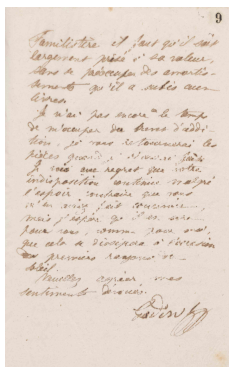 9
Familistère il faut qu'il soit
largement prisé à sa valeur,
sans se préoccuper des amortis-
sements qu'il a subis aux
livres.
Je n'ai pas encore le temps
de m'occuper des bons d'addi-
tion, je vous retournerai les
pièces quand
Je vois avec regret que votre
indisposition continue malgré
l'espoir contraire que vous
m'en aviez fait concevoir
mais j'espère qu'il en sera
pour vous, comme pour moi,
que cela se dissipera à l'occasion
des premiers rayons de
soleil.
Veuillez agréer mes
sentiments dévoués.
Godin